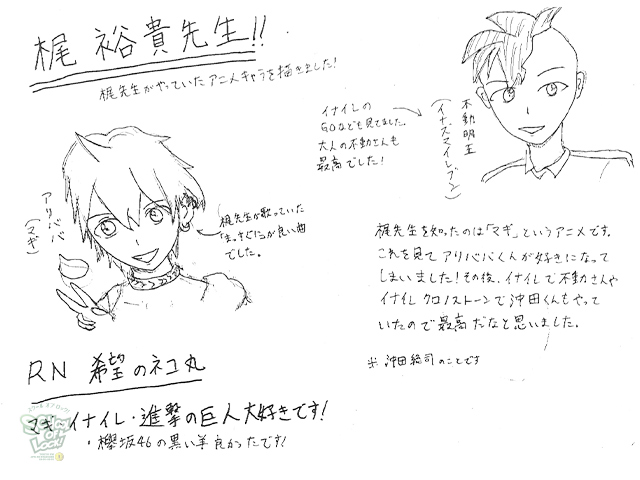 梶 裕貴先生!!
梶先生がやっていたアニメキャラを描きました!
イナイレの
GOなども見てました。
大人の不動さんも
最高でした!
不動明王
(イナズマイレブン)
アリババ
(マギ)
梶先生が歌っていた
「まっすぐに」が良い曲
でした。
梶先生を知ったのは「マギ」というアニメです。
これを見てアリババくんが好きになって
しまいました!その後、イナイレで不動さんや
イナイレクロノストーンで沖田くんもやって
いたので最高だなと思いました。
※沖田総司のことです
RN 希望のネコ丸
マギ・イナイレ・進撃の巨人大好きです!
・欅坂46の黒い羊良かったです!
SCHOOL OF LOCK!